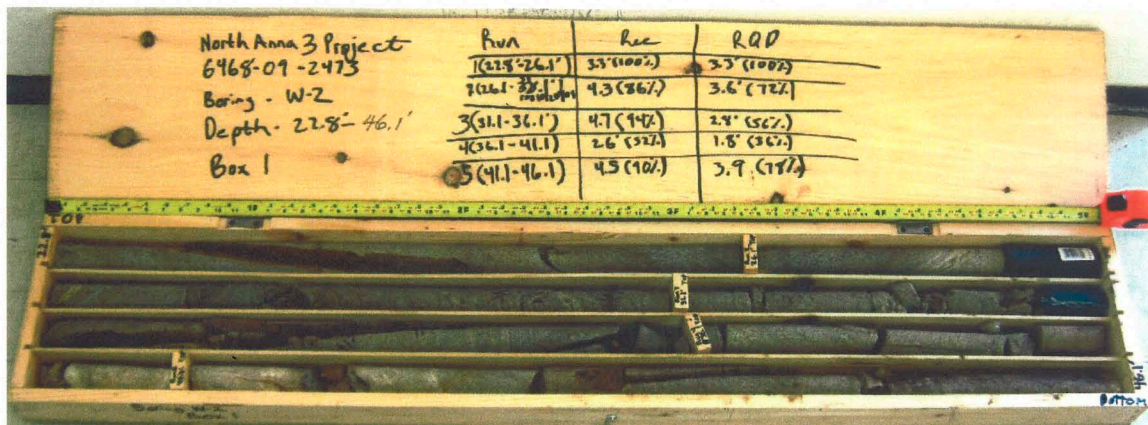 North Anna 3 Project
6468-09-2473
Boring - W-2
Depth - 22.8'- 46.1'
Box 1
Run Rec RQD
1(22.8'-26.1') 3.3'(100%) 3.3'(100%)
2(26.1- 4.3(86%) 3.6'(72%)
3(31.1-36.1') 4.7(94%) 2.8'(56%)
4(36.1-41.1) 2.6'(52%) 1.8'(36%)
5(41.1-46.1) 4.5(90%) 3.9 (78%)
TOP
22.8'
46.1'
Bottom
Boring W-2
Box 1